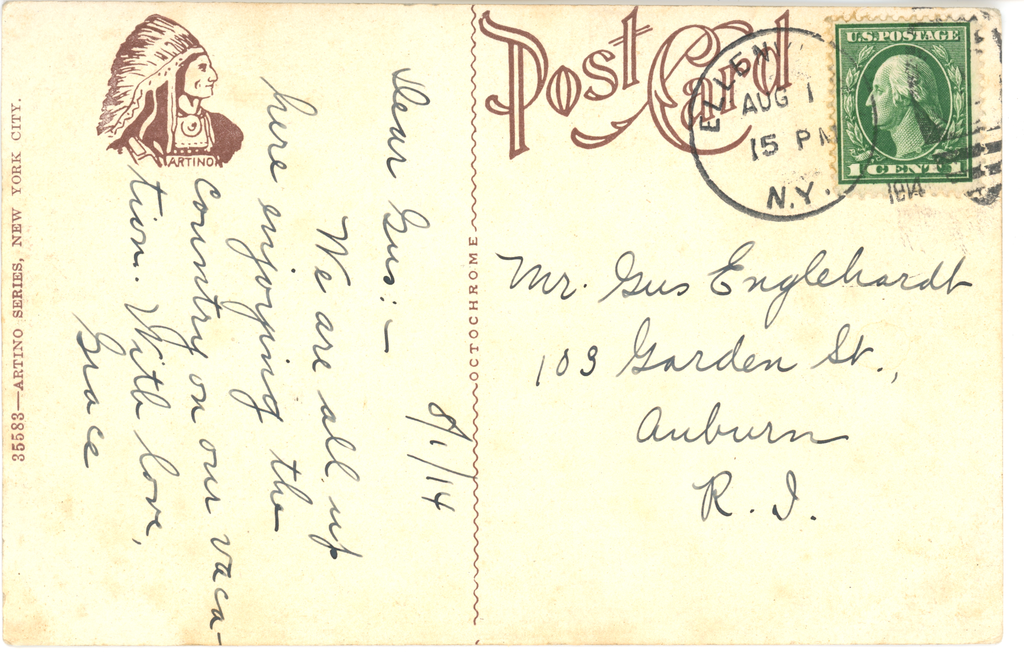 35583—ARTINO SERIES, NEW YORK CITY.
ARTINO
8/1/14
Dear Gus:—
We are all up
here enjoying the
country on our vaca-
tion. With love,
Grace
OCTOCHROME
Post Card
AUG 1
15 PM
N.Y.
1914
U.S. POSTAGE
1 CENT 1
Mr. Gus Englehardt
103 Garden St.,
Auburn
R. I.